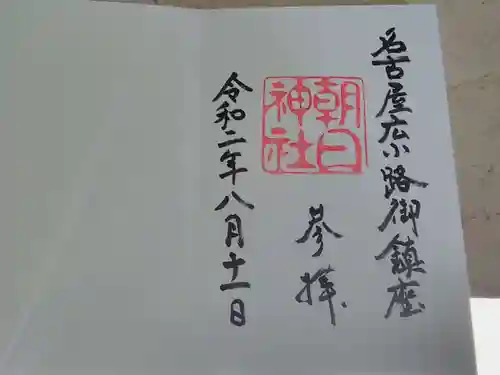 名古屋広小路御鎮座
朝日神社
参拝
令和二年八月十一日